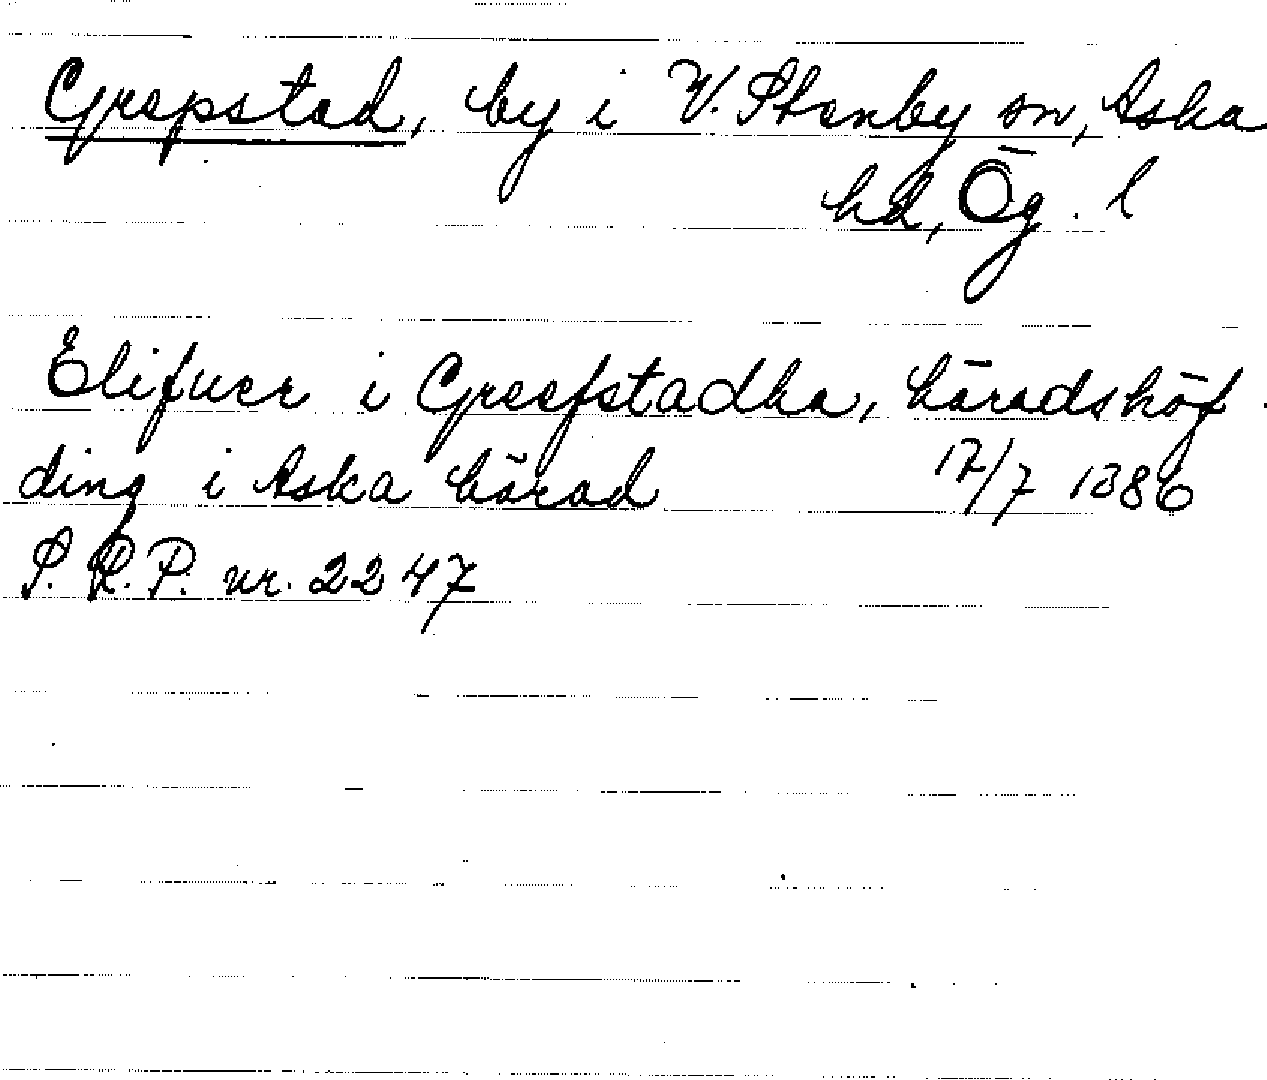 Grepstad, by i V. Stenby sn, Aska
hd, Ög. l
Elifuer i Greefstadha, häradshöf
ding i Aska härad 17/7 1386
S. R. P. nr. 2247